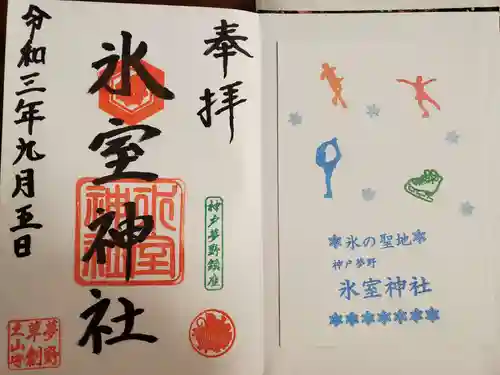 奉拝
氷室神社
氷室神社
神戸夢野鎮座
令和三年九月五日
夢野
草創
氷の聖地
神戸夢野
氷室神社